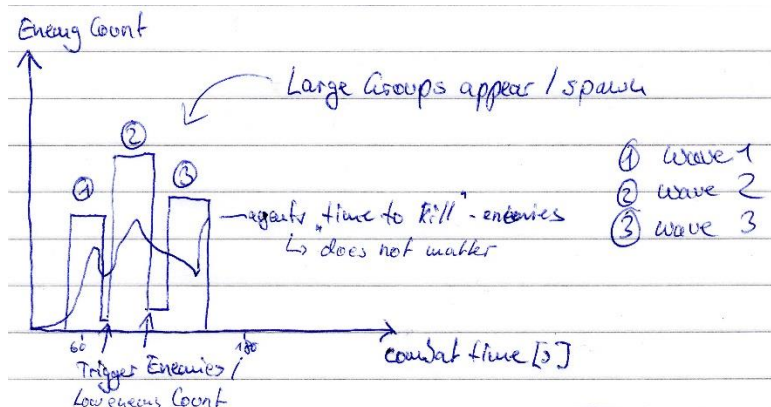 Enemy Count
Large Groups appear / spawn
②
① wave 1
① ③
② wave 2
agents "time to kill"-enemies
③ wave 3
↳ does not matter
60 180
combat time [s]
Trigger Enemies /
Low enemy Count